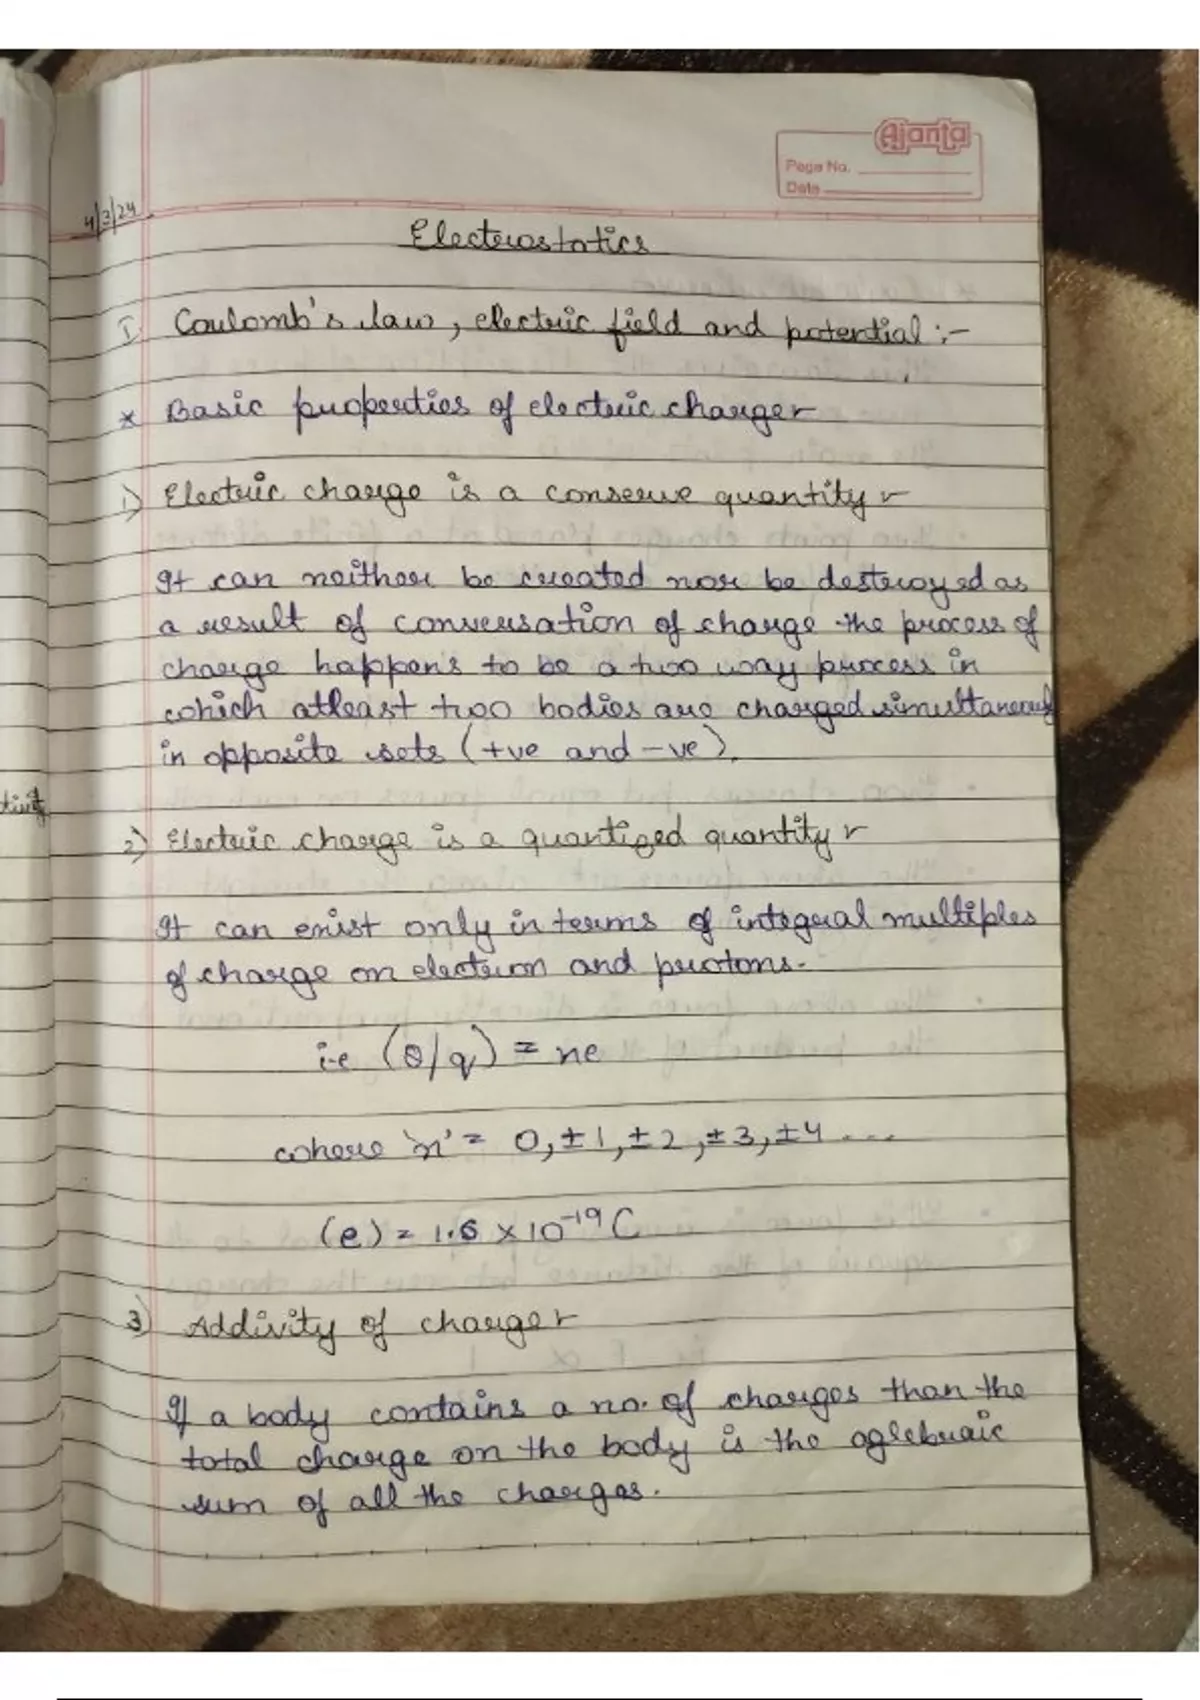 Ajanta
Page No.
Date
4/3/24
Electrostatics
I. Coulomb's law, electric field and potential :-
* Basic properties of electric charge r
1) Electric charge is a conserve quantity r
It can neither be created nor be destroyed as
a result of conversation of charge the process of
charge happens to be a two way process in
which atleast two bodies are charged simultaneously
in opposite sets (+ve and -ve).
2) Electric charge is a quantized quantity r
It can exist only in terms of integral multiples
of charge on electron and protons.
i.e (Q/q) = ne
where 'n' = 0, ±1, ±2, ±3, ±4 ...
(e) = 1.6 × 10⁻¹⁹ C
3) Addivity of charge r
If a body contains a no. of charges than the
total charge on the body is the aglebraic
sum of all the charges.